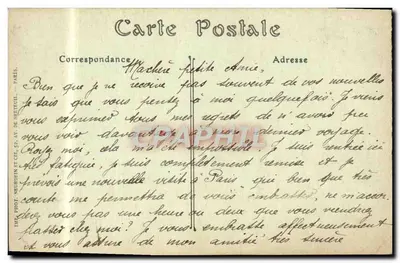 Carte Postale
Correspondance
Adresse
Ma chère petite Amie,
Bien que je ne reçoive pas souvent de vos nouvelles
je sais que vous pensez à moi quelquefois. Je viens
vous exprimer tous mes regrets de n'avoir pu
vous voir davantage dernier voyage
Croyez moi, cela m'a été impossible. Je suis rentrée ici
très fatiguée, je suis complètement remise et je
prévois une nouvelle visite à Paris qui bien que très
courte me permettra de vous embrasser, ne m'accor
derez vous pas une heure ou deux que vous viendrez
passer chez moi? Je vous embrasse affectueusement
et vous assure de mon amitié très sincère